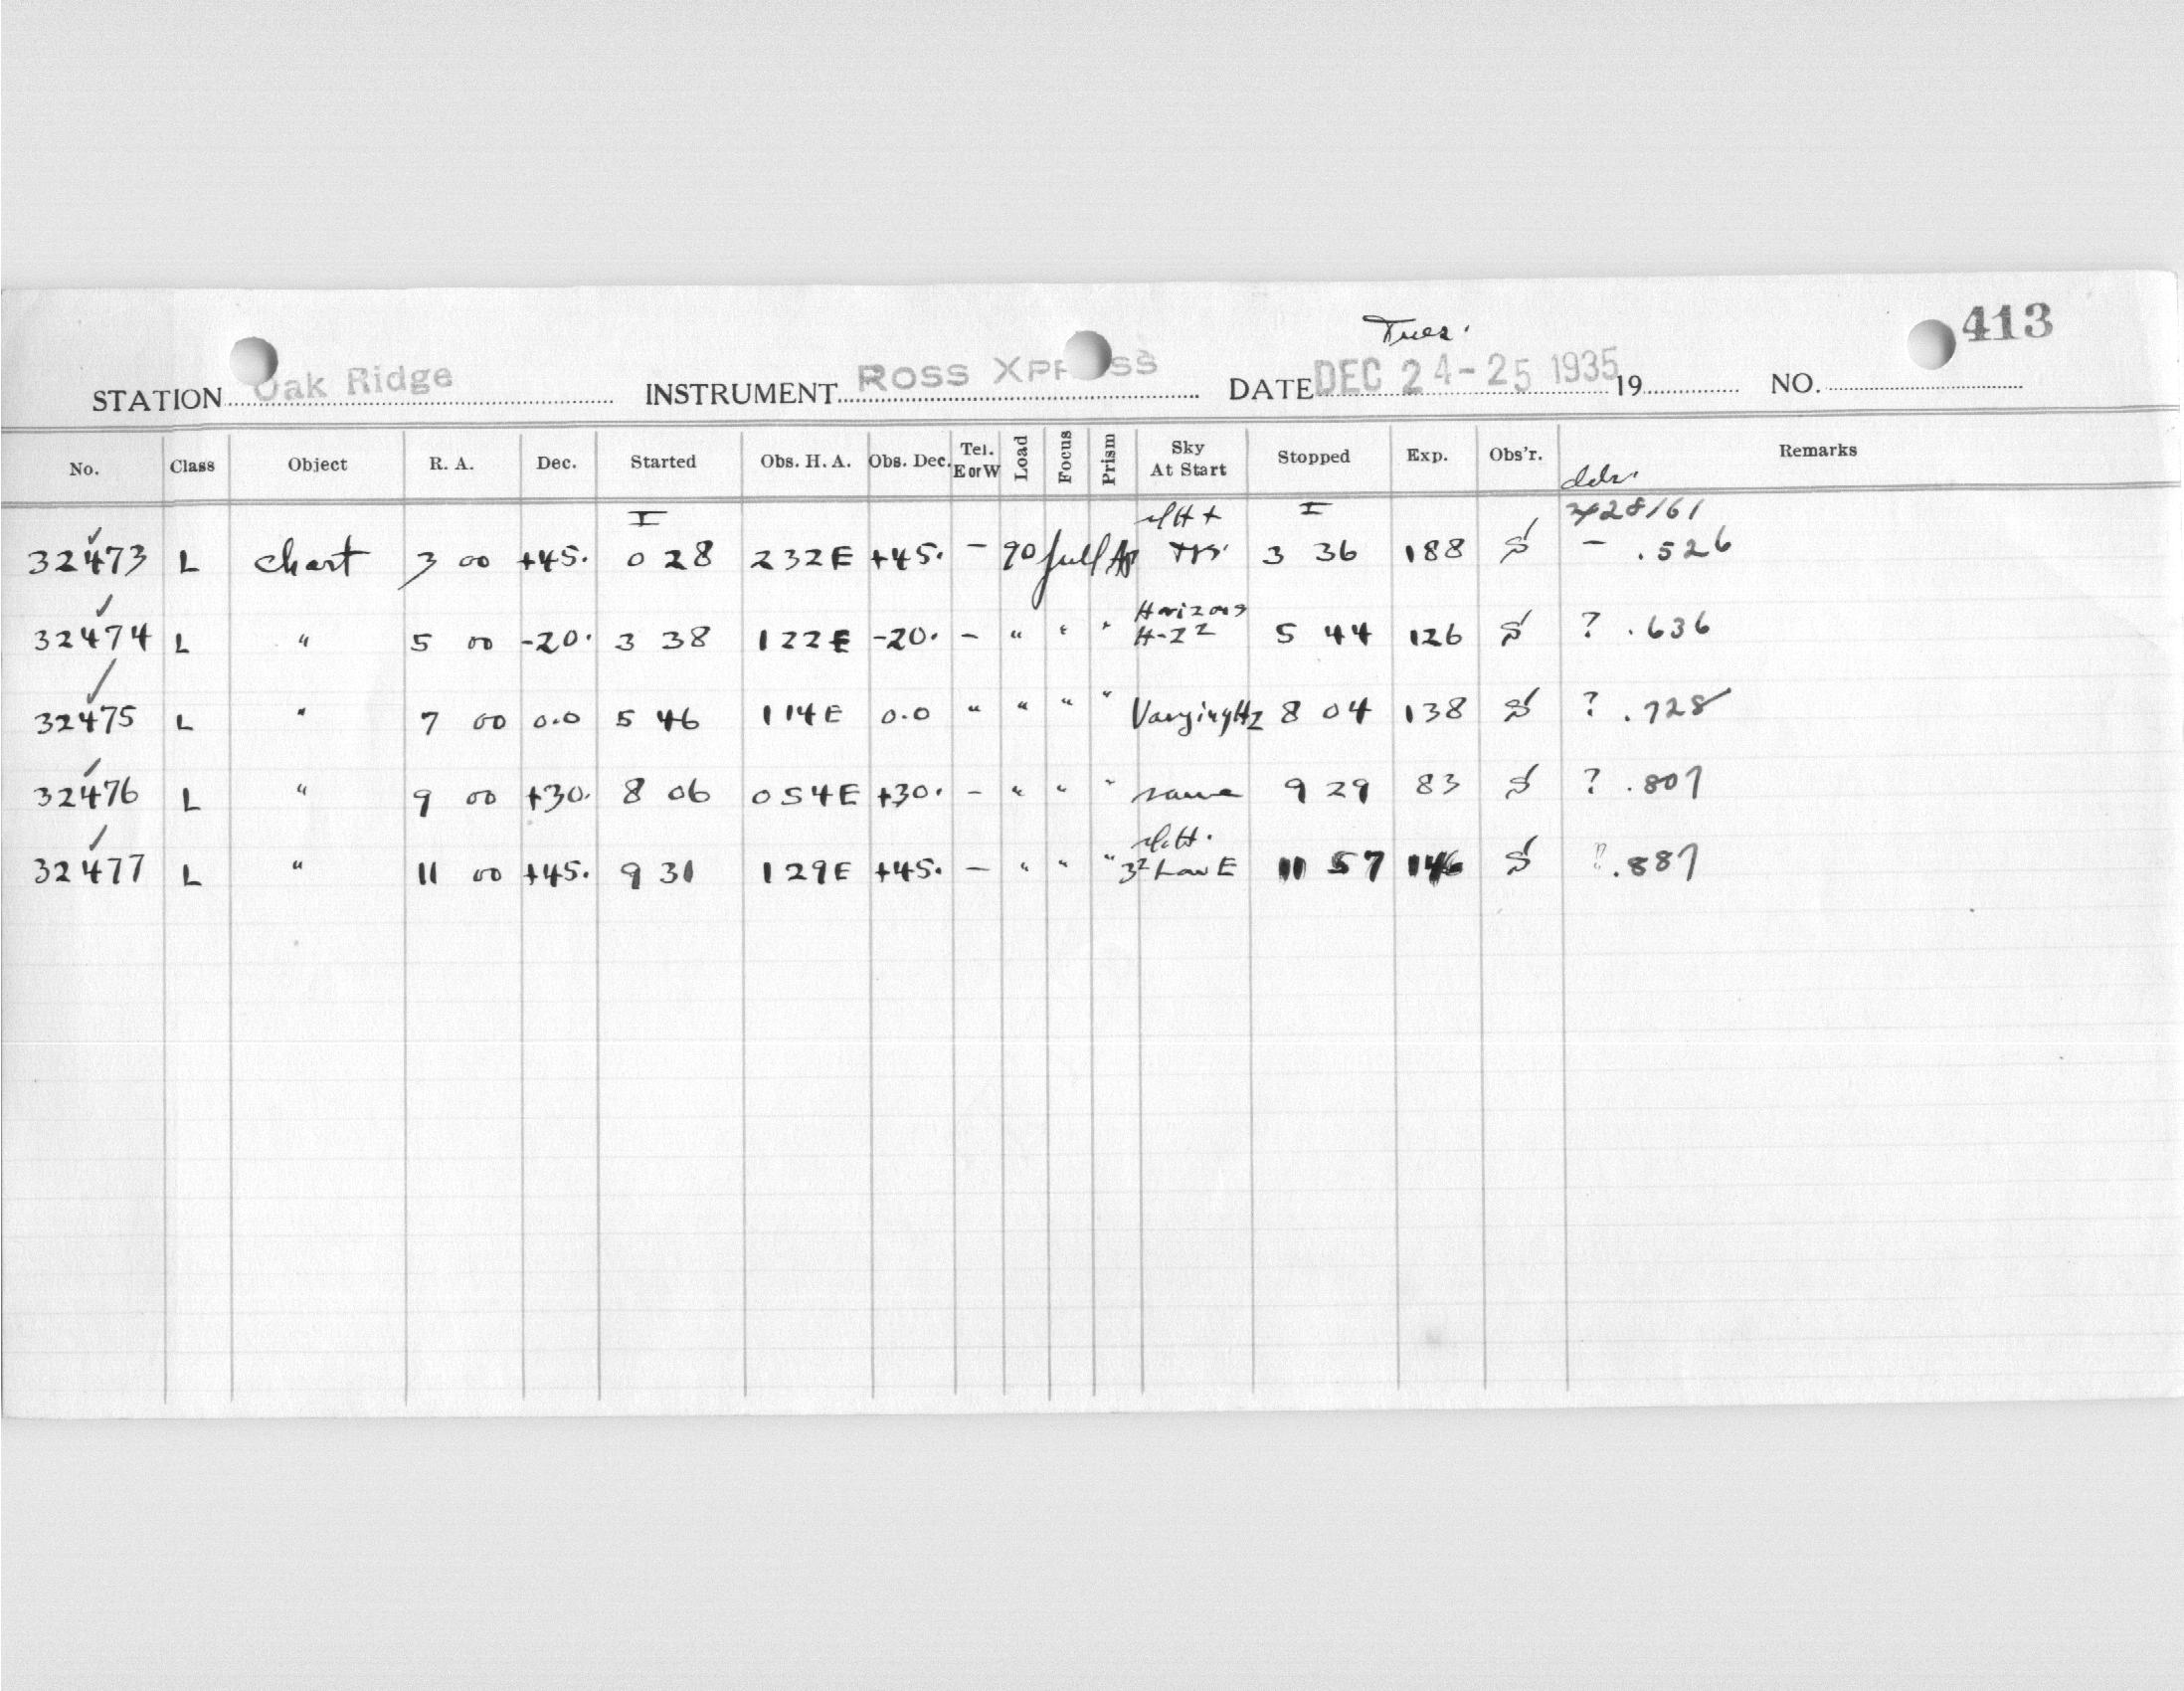 Tues.
413
STATION Oak Ridge INSTRUMENT ROSS XPRESS DATE DEC 24-25 1935 19 NO.
No. Class Object R. A. Dec. Started Obs. H. A. Obs. Dec. Tel. E or W Load Focus Prism Sky At Start Stopped Exp. Obs'r. Remarks
I I 28161
32473 L chart 3 00 +45. 0 28 232E +45. - 90 full Ap 3 36 188 S - .526
Horizons
32474 L " 5 00 -20. 3 38 122E -20. - " " " H-Z2 5 44 126 S ? .636
32475 L " 7 00 0.0 5 46 114E 0.0 " " " " Varying Hz 8 04 138 S ? .728
32476 L " 9 00 +30. 8 06 054E +30. - " " " same 9 29 83 S ? .807
32477 L " 11 00 +45. 9 31 129E +45. - " " " 32 Low E 11 57 146 S ? .887